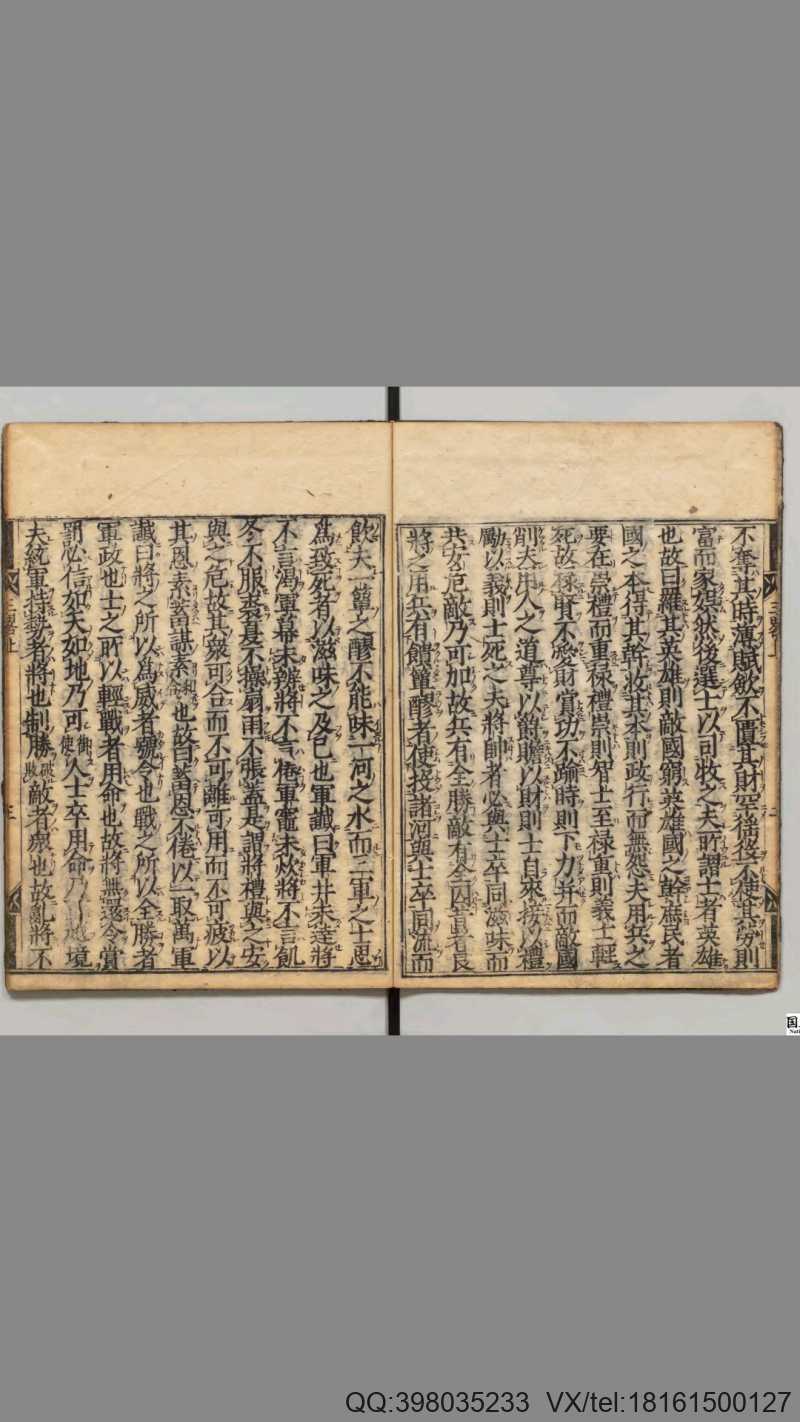 不奪其時薄賦斂不匱其財罕徭役不使其勞則
富而家娯然後選士以司牧之夫所謂士者英雄
也故曰羅其英雄則敵國窮英雄國之幹庶民者
國之本得其幹收其本則政行而無怨夫用兵之
要在崇禮而重禄禮崇則智士至禄重則義士輕
死故禄賢不愛財賞功不踰時則下力并而敵國
削夫用人之道尊以爵贍以財則士自來接以禮
勵以義則士死之夫將帥者必與士卒同滋味而
共安危敵乃可加故兵有全勝敵有全因昔者良
將之用兵有饋簞醪者使投諸河與士卒同流而
飲夫一簞之醪不能味一河之水而三軍之士思
爲致死者以滋味之及已也軍讖曰軍井未達將
不言渴軍幕未辨將不言倦軍竈未炊將不言飢
冬不服裘夏不操扇雨不張蓋是謂將禮與之安
與之危故其衆可合而不可離可用而不可疲以
其恩素蓄謀素和也故曰蓄恩不倦以一取萬軍
讖曰將之所以爲威者號令也戰之所以全勝者
軍政也士之所以輕戰者用命也故將無還令賞
罰必信如天如地乃可御使人士卒用命乃越境
夫統軍持勢者將也制勝破敗敵者衆也故亂將不
三畧上
二
三畧上
三
国
Nati
QQ:398035233 VX/tel:18161500127